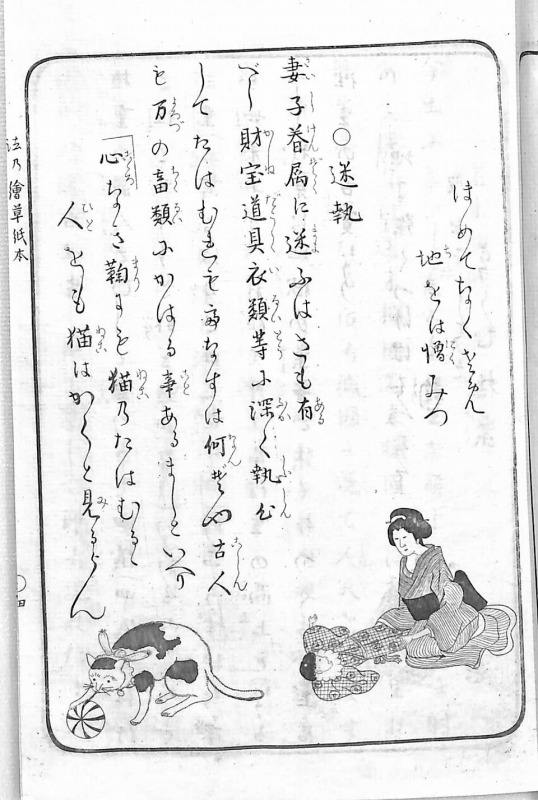 はめてなく
地をは憎みつ
○迷執
妻子眷属に迷ふはさも有
べし財宝道具衣類等に深く執心
してたはむ なすは何ぞや古人
も万の畜類にかはる事あるましといへり
心なき鞠にも猫乃たはむるゝ
人をも猫はかくと見るらん
法乃繪草紙本
○四